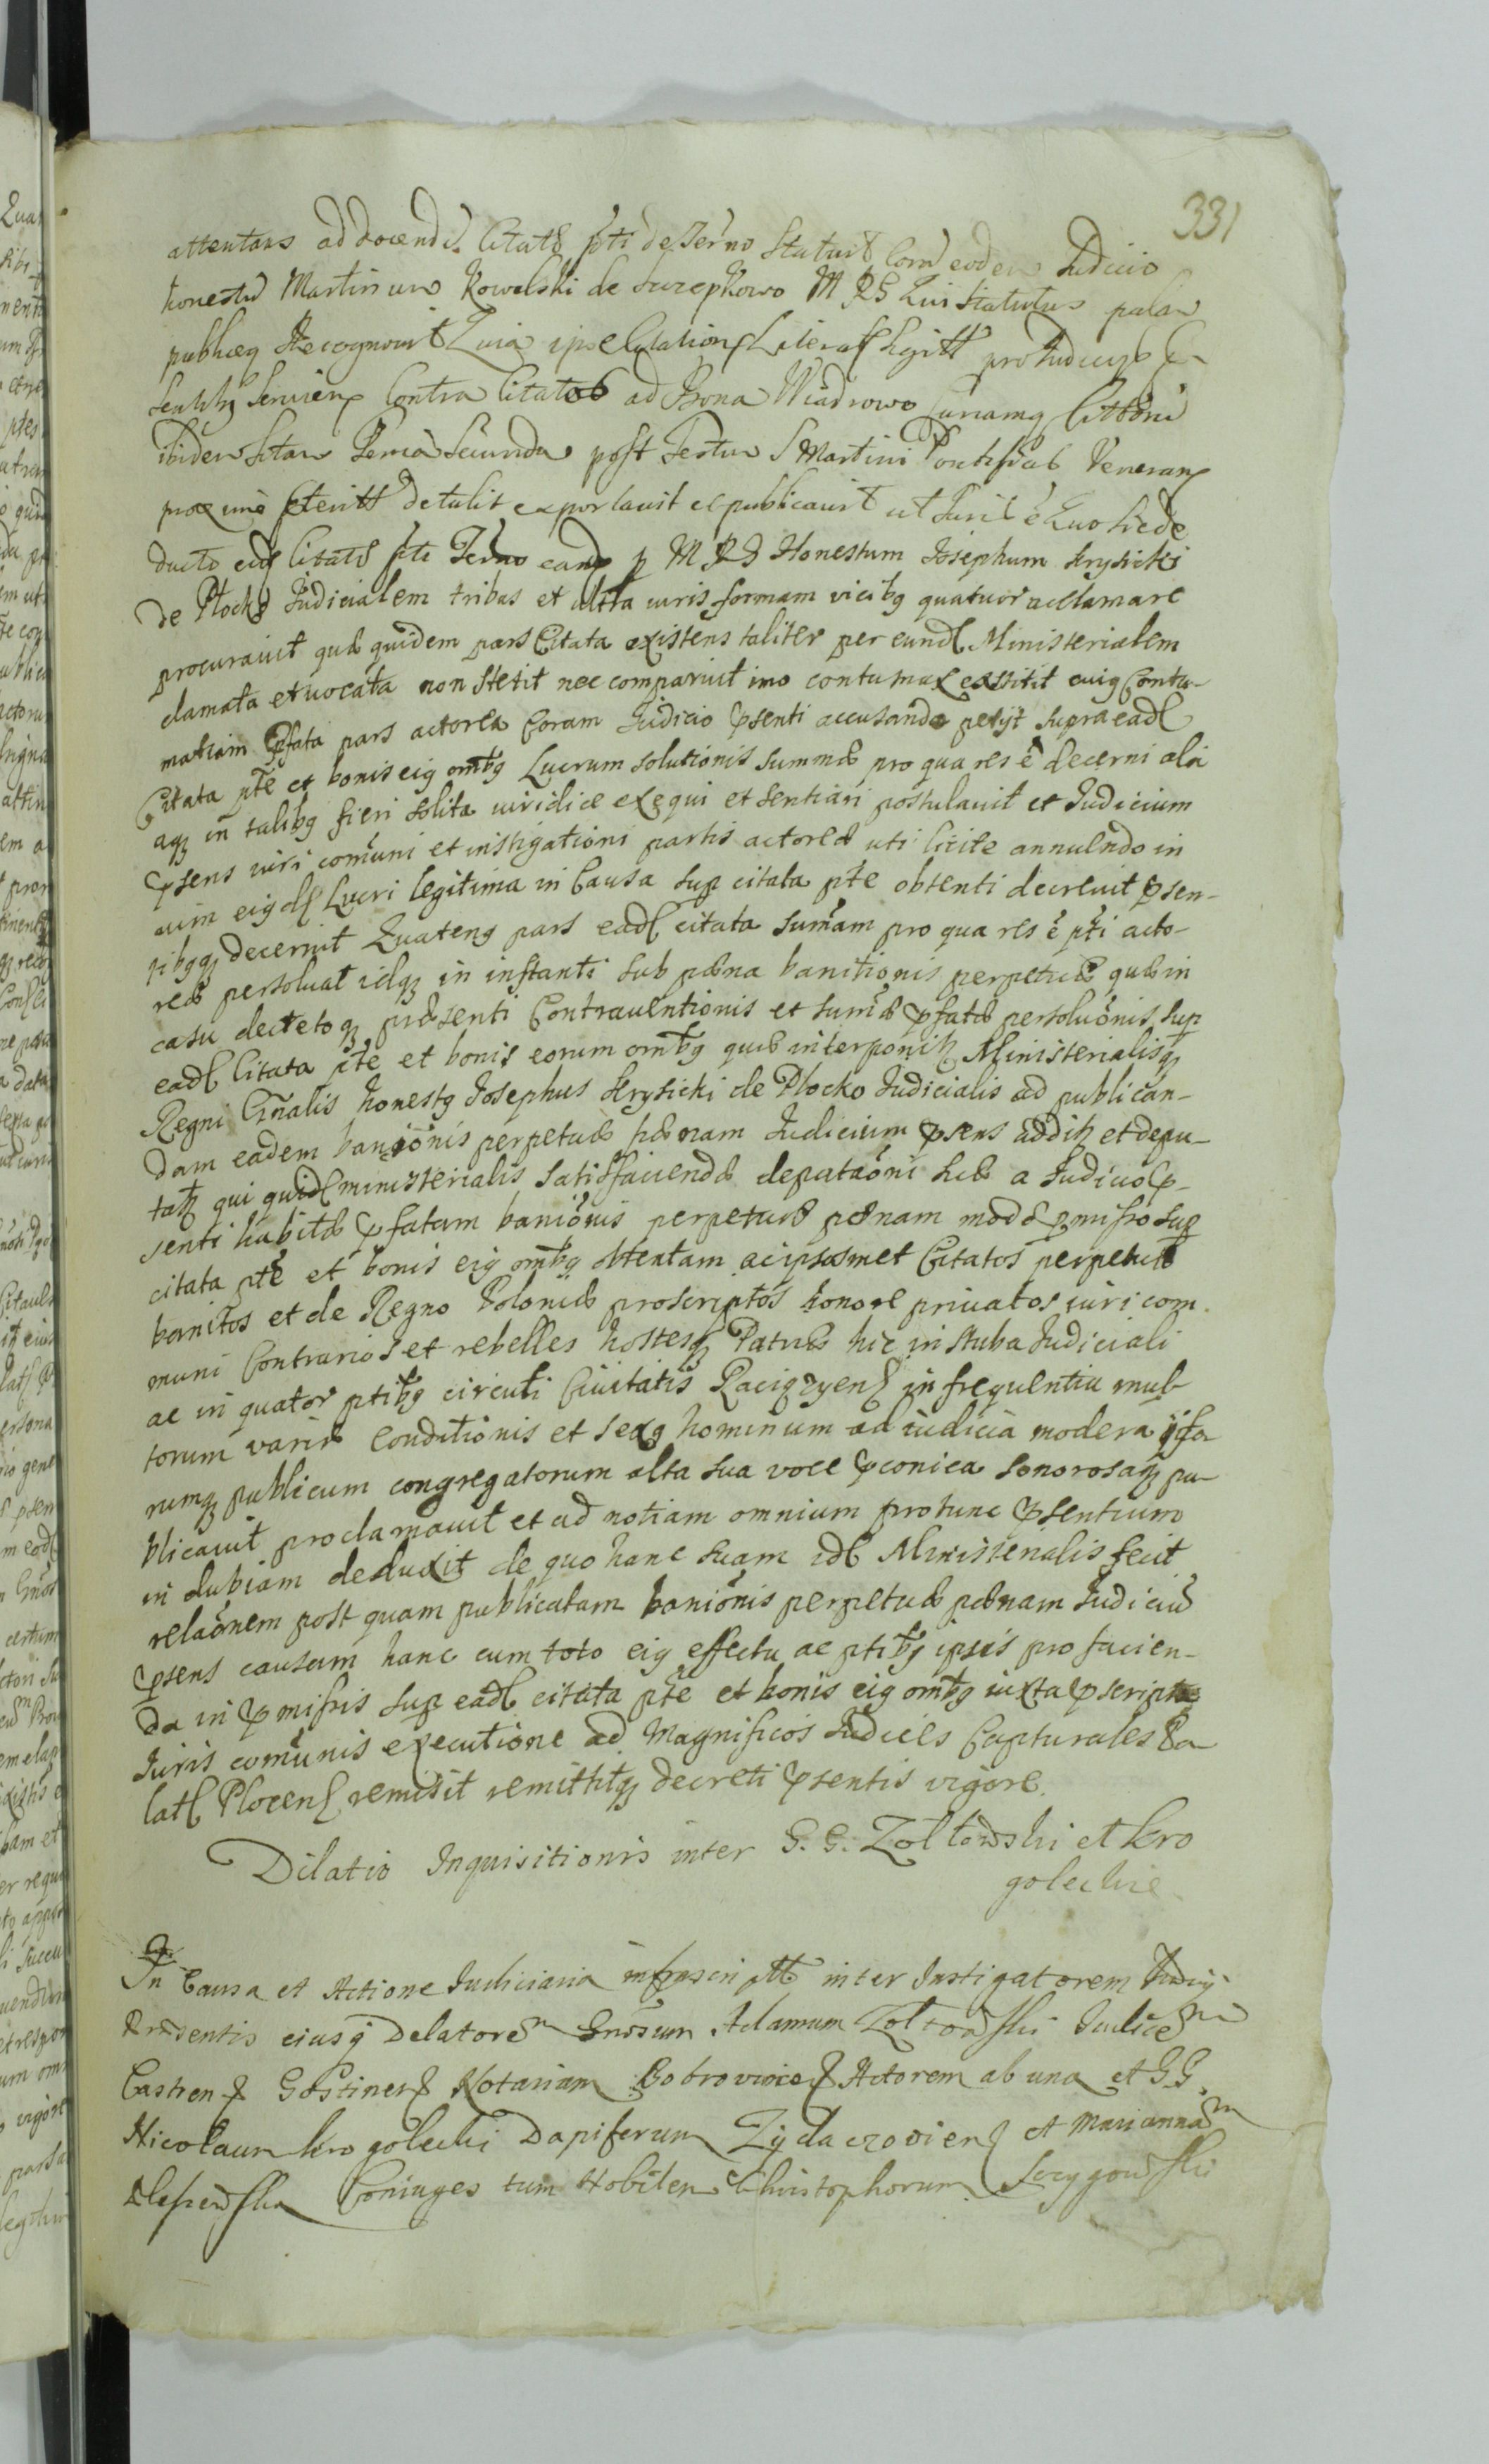 331
attentans ad docend Citatae pti de Terno Statuit Coram eodem Judicio
honestu Martinum Kowalski de Szczepkowo M R G Qui Statutus palam
publiceq Recognovit Quia ipse Citation Literas legitt pro Judicys
Servien Contra Citatos ad Bona Wiadrowo Curiamq
ibidem sitam Feria Secunda post Festum S Martini Pontificis
proxime detulit exportavit et publicavit ut Juris e Quo sic de
ducto Citatae pti Terno p M R G Honestum Josephum Krysicki
de Plocko Judicialem tribus et ultra iuris formam vicibg quatuor acclamare
procuravit quae quidem pars Citata existens taliter per eund Ministerialem
clamata et vocata non stetit nec comparuit imo contumax exstitit cuig Contu-
matiam pfata pars actorea Coram Judicio psenti accusando petijt supra eadl
Citata pte et bonis eig omibg Lucrum solutionis summae pro qua res e decerni alia
aq in talibg fieri solita iuridice exequi et sentiari postulavit et Judicium
psens iuri comuni et instigationi partis actoreae uti licite annuendo in
vim eigdl Lucri legitima in Causa sup citata pte obtenti decrevit psen-
tibgq decernit Quateng pars eadl citata sumam pro qua res e pti acto-
reae persolvat idq in instanti sub paena banitionis perpetuae quae in
casu decretoq praesenti Contraventionis et sumae pfatae persolvonis sup
eadl Citata pte et bonis eorum omibg quae interponitz Ministerialisq
Regni Gnalis honestg Josephus Krysicki de Plocko Judicialis ad publican-
dam eadem banionis perpetuae paenam Judicium psens additz et depu-
tatz qui quidl ministerialis satisfaciendo deputationi suae a Judicio p-
senti habitae pfatam banionis perpetuae paenam modo pmisso sup
citata pte et bonis eig omibg obtentam ac ipsosmet Citatos perpetuae
banitos et de Regno Poloniae proscriptos honore privatos iuri com
muni Contrarios et rebelles hostesq Patriae hic in stuba Judiciali
ac in quatuor ptibg circuli Civitatis Raciqzyens in frequentia mul-
torum variae conditionis et sexg hominum ad iudicia moderna ifo
rumq publicum congregatorum alta sua voce pconica sonorosaq pu-
blicavit proclamavit et ad notiam omnium pro tunc psentium
in dubiam deduxit de quo hanc suam idl Ministerialis fecit
relaonem post quam publicatam banionis perpetuae paenam Judiciu
psens causam hanc cum toto eig effectu ac ptibg ipsis pro facien-
da in pmissis sup eadl citata pte et bonis eig omibg iuxta pscripta
Juris comunis executione ad Magnificos Judices Capturales Pa
latl Plocens remisit remittitq decreti psentis vigore.
Dilatio Inquisitionis inter G. G. Zoltowski et Kro
goleckie
In Causa et Actione Judiciaria infrascriptt inter Instigatorem Judicij
Praesentis eiusq Delatorem Gnosum Adamum Zoltowski Judicem
Castren Gostinens Notarium Actorem ab una et GG
Nicolaum Krogolecki Dapiferum Zydaczovien et Mariannam
Coniuges tum Nobilem Christophorum Szczygowski